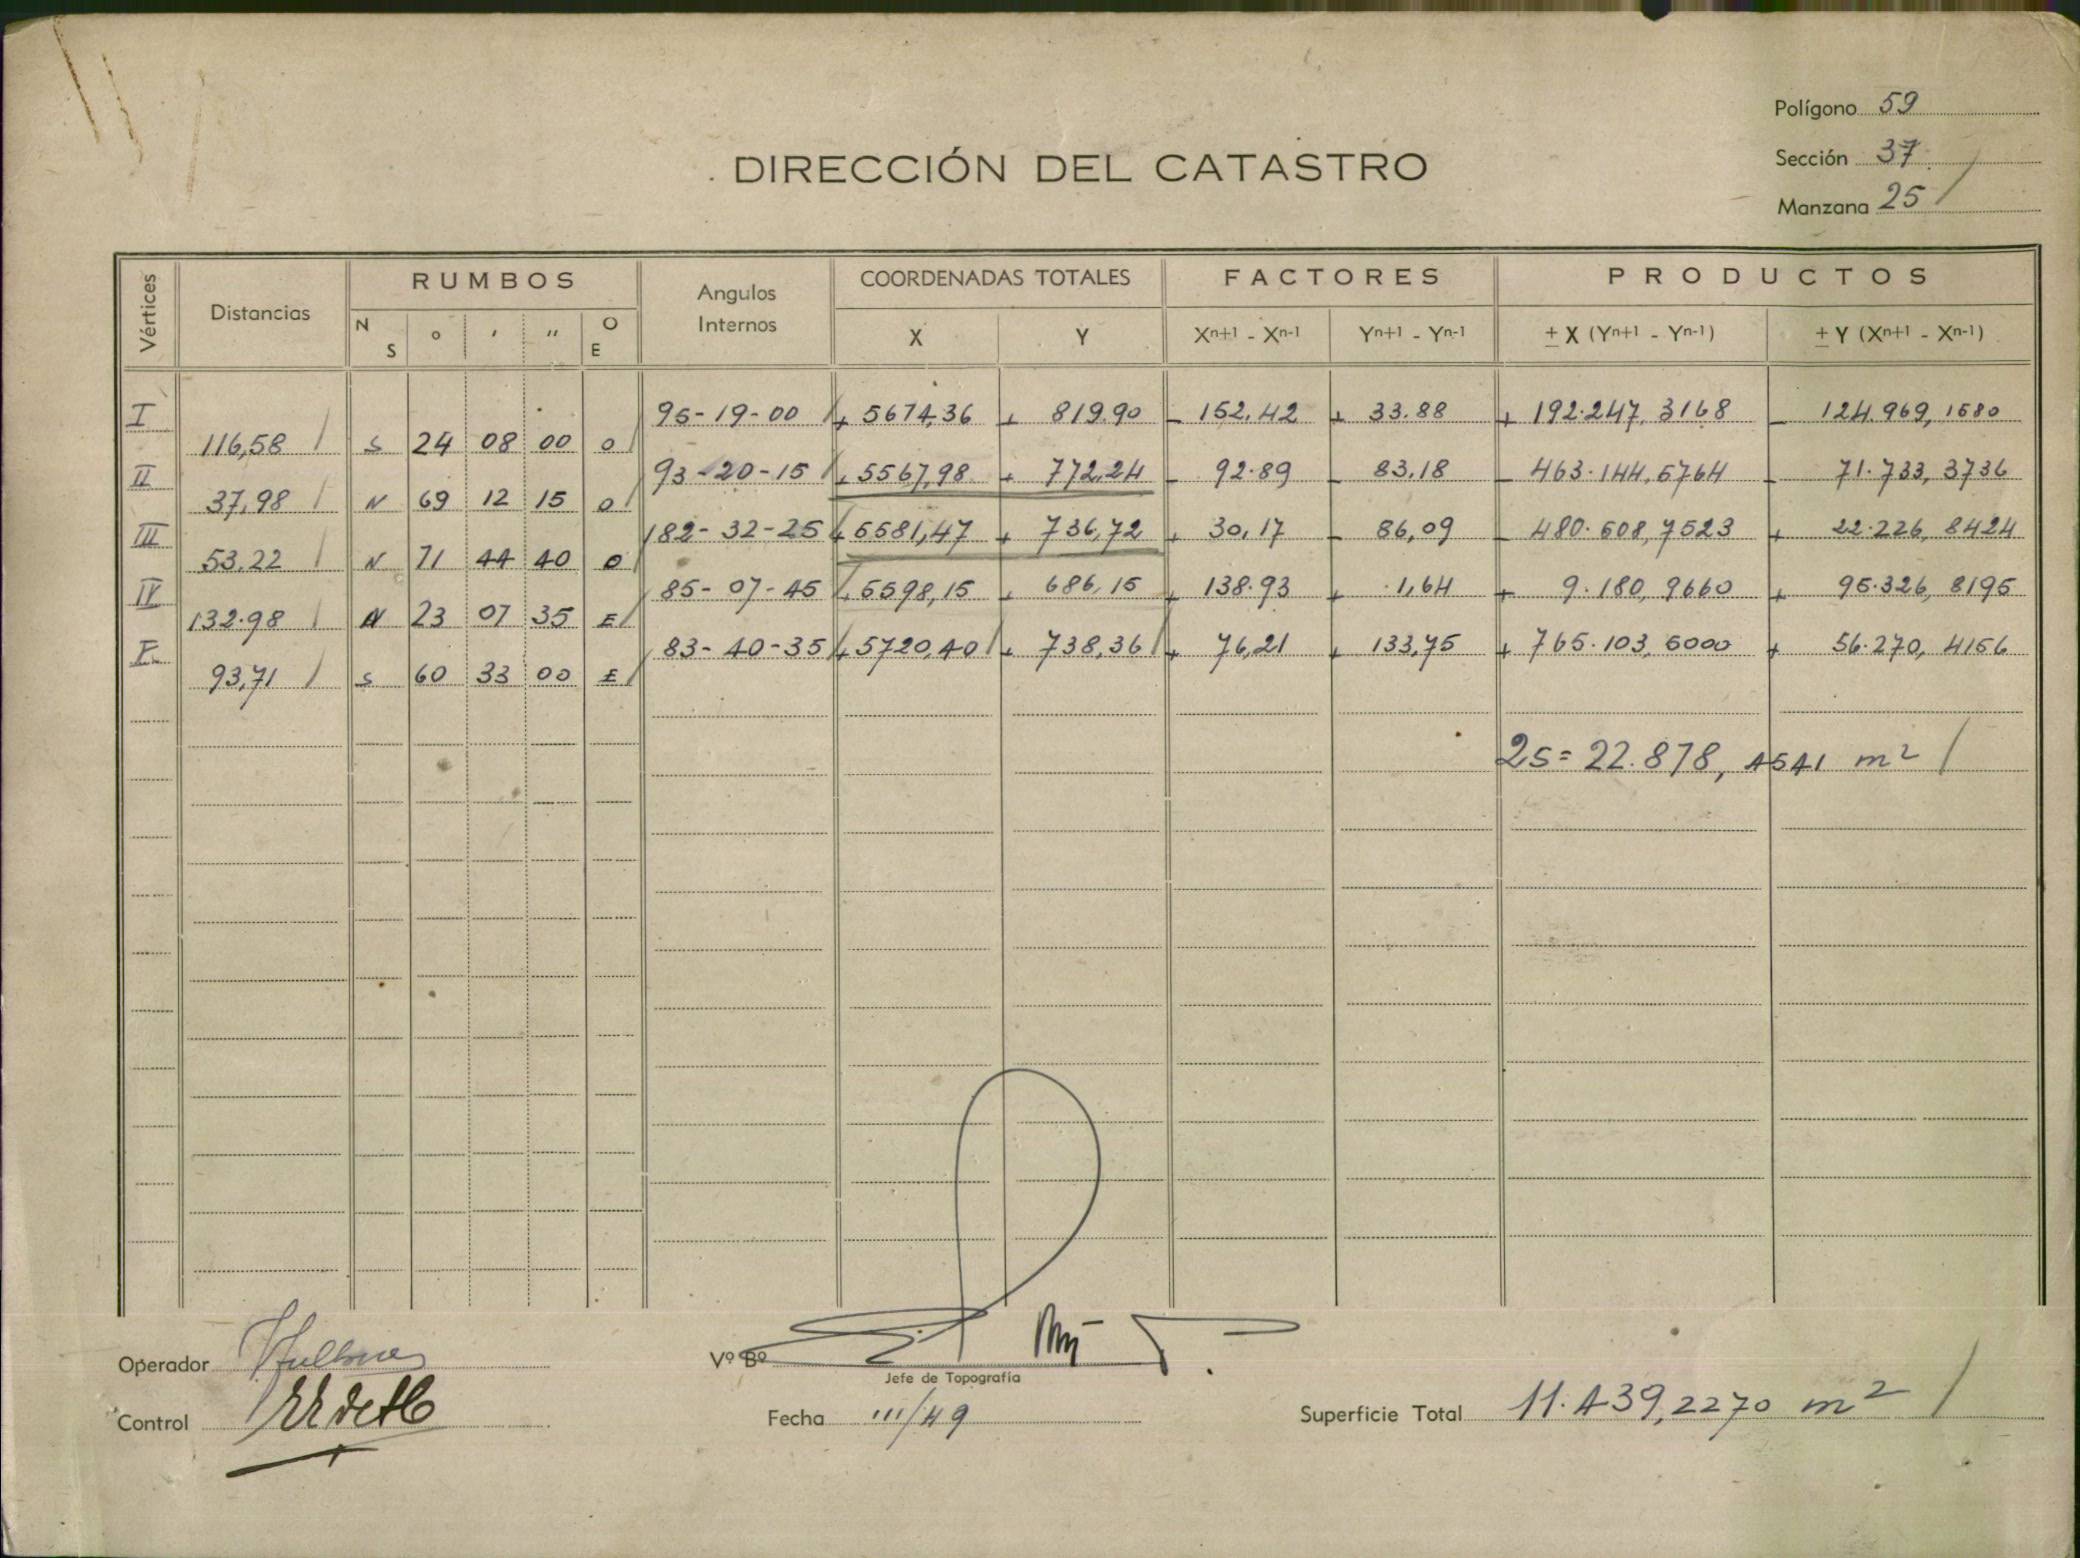 Polígono 59
Sección 37
Manzana 25
DIRECCIÓN DEL CATASTRO
Vértices Distancias RUMBOS Angulos Internos COORDENADAS TOTALES FACTORES PRODUCTOS
N S ° ' " O E X Y Xn+1 - Xn-1 Yn+1 - Yn-1 ± X (Yn+1 - Yn-1) ± Y (Xn+1 - Xn-1)
I 95-19-00 + 5674,36 + 819.90 - 152.42 + 33.88 + 192.247,3168 - 124.969,1580
116,58 S 24 08 00 O
II 93-20-15 + 5567,98 + 772,24 - 92.89 - 83,18 - 463.144,5764 - 71.733,3736
37,98 N 69 12 15 O
III 182-32-25 + 5581,47 + 736,72 + 30,17 - 86,09 - 480.508,7523 + 22.226,8424
53.22 N 71 44 40 O
IV 85-07-45 + 5598,15 + 686,15 + 138.93 + 1,64 + 9.180,9660 + 95.326,8195
132.98 N 23 07 35 E
V 83-40-35 + 5720,40 + 738,36 + 76,21 + 133,75 + 765.103,5000 + 56.270,4156
93,71 S 60 33 00 E
2S = 22.878,4541 m²
Operador
Vº Bº
Jefe de Topografía
Control
Fecha III/49
Superficie Total 11.439,2270 m²